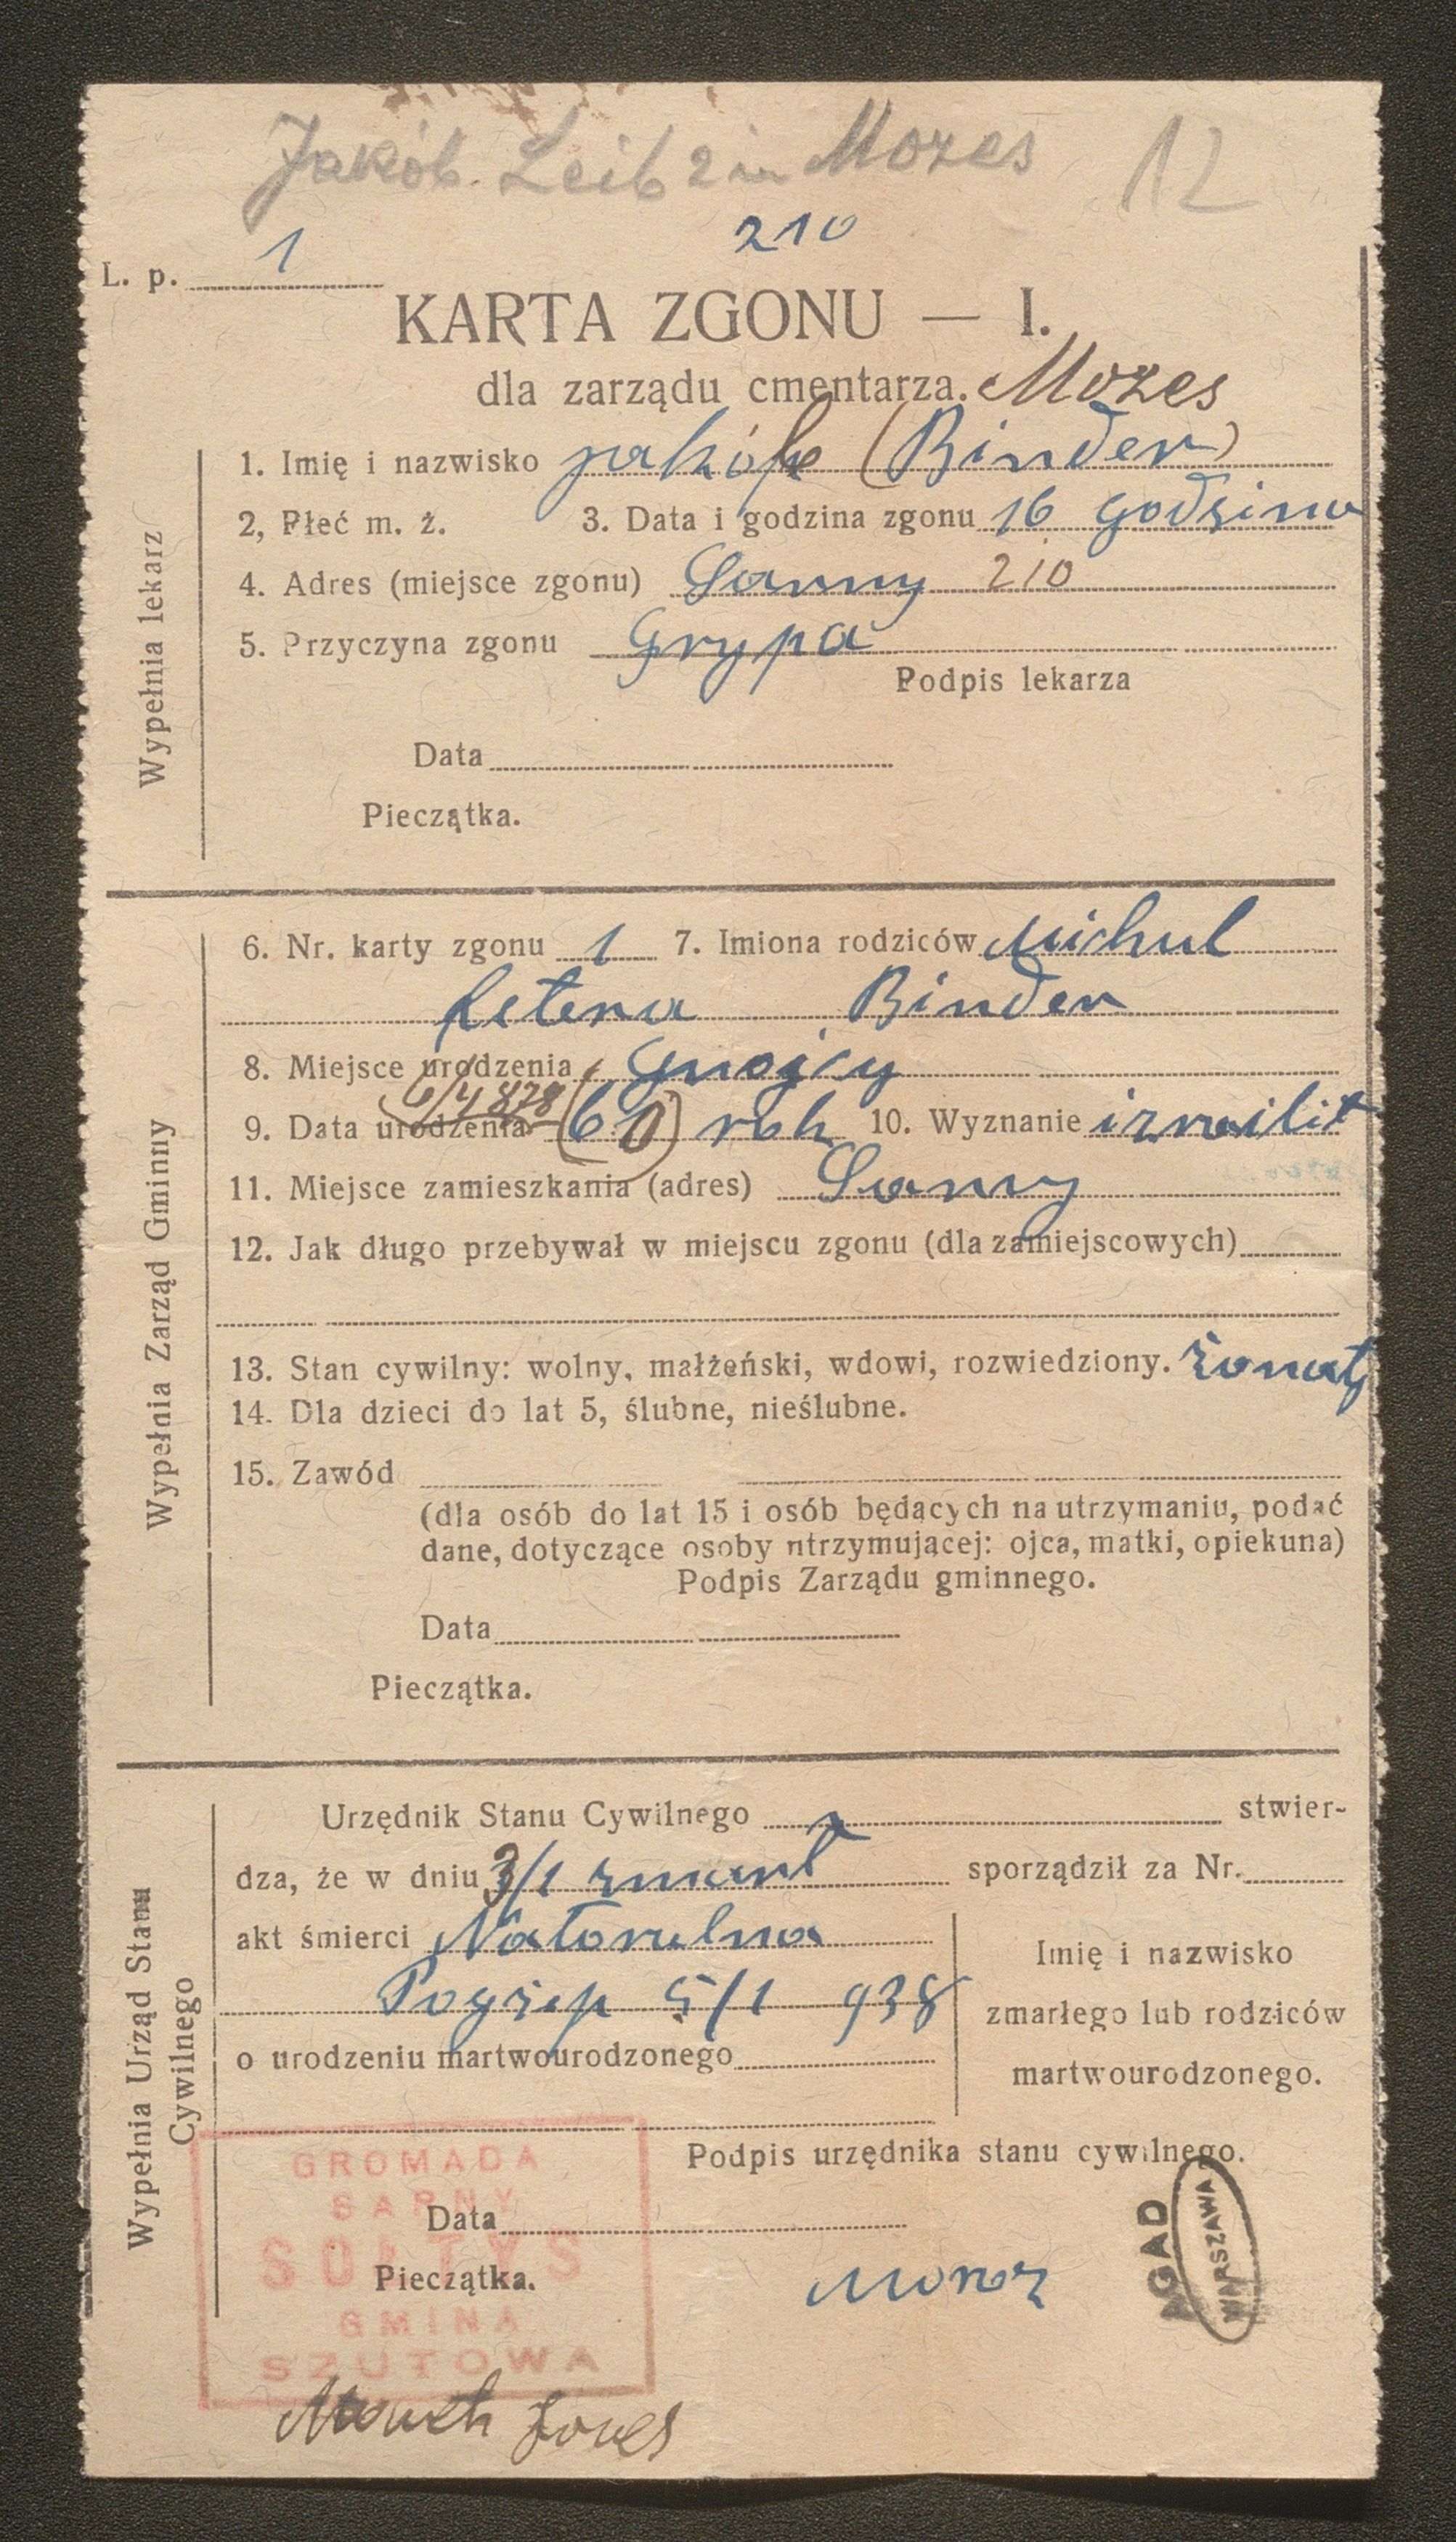 Jakób Leib 2 im Mozes 12
210
L. p. 1
KARTA ZGONU — I.
dla zarządu cmentarza. Mozes
Wypełnia lekarz
1. Imię i nazwisko jakób (Binder)
2, Płeć m. ż. 3. Data i godzina zgonu 16 godzina
4. Adres (miejsce zgonu) Sarny 210
5. Przyczyna zgonu Grypa
Podpis lekarza
Data
Pieczątka.
Wypełnia Zarząd Gminny
6. Nr. karty zgonu 1 7. Imiona rodziców Michul
Binder
8. Miejsce urodzenia Gnojcy
6/4 878
9. Data urodzenia (60) rok 10. Wyznanie izrailit
11. Miejsce zamieszkania (adres) Sarny
12. Jak długo przebywał w miejscu zgonu (dla zamiejscowych)
13. Stan cywilny: wolny, małżeński, wdowi, rozwiedziony. żonaty
14. Dla dzieci do lat 5, ślubne, nieślubne.
15. Zawód
(dla osób do lat 15 i osób będących na utrzymaniu, podać
dane, dotyczące osoby ntrzymującej: ojca, matki, opiekuna)
Podpis Zarządu gminnego.
Data
Pieczątka.
Wypełnia Urząd Stanu
Cywilnego
Urzędnik Stanu Cywilnego stwier-
dza, że w dniu 3/1 zmarł sporządził za Nr.
akt śmierci Natorulna
Pogrzep 5/1 938
o urodzeniu martwourodzonego
Imię i nazwisko
zmarłego lub rodziców
martwourodzonego.
Podpis urzędnika stanu cywilnego.
Data
Pieczątka.
GROMADA
SARNY
SOŁTYS
GMINA
SZUTOWA
AGAD
WARSZAWA